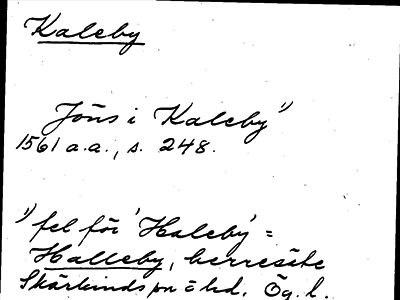 Kaleby
Jöns i Kaleby¹⁾
1561 a.a., s. 248.
¹⁾ fel för 'Haleby' =
Halleby, herresäte
Skärkinds sn o hd. Ög. l.